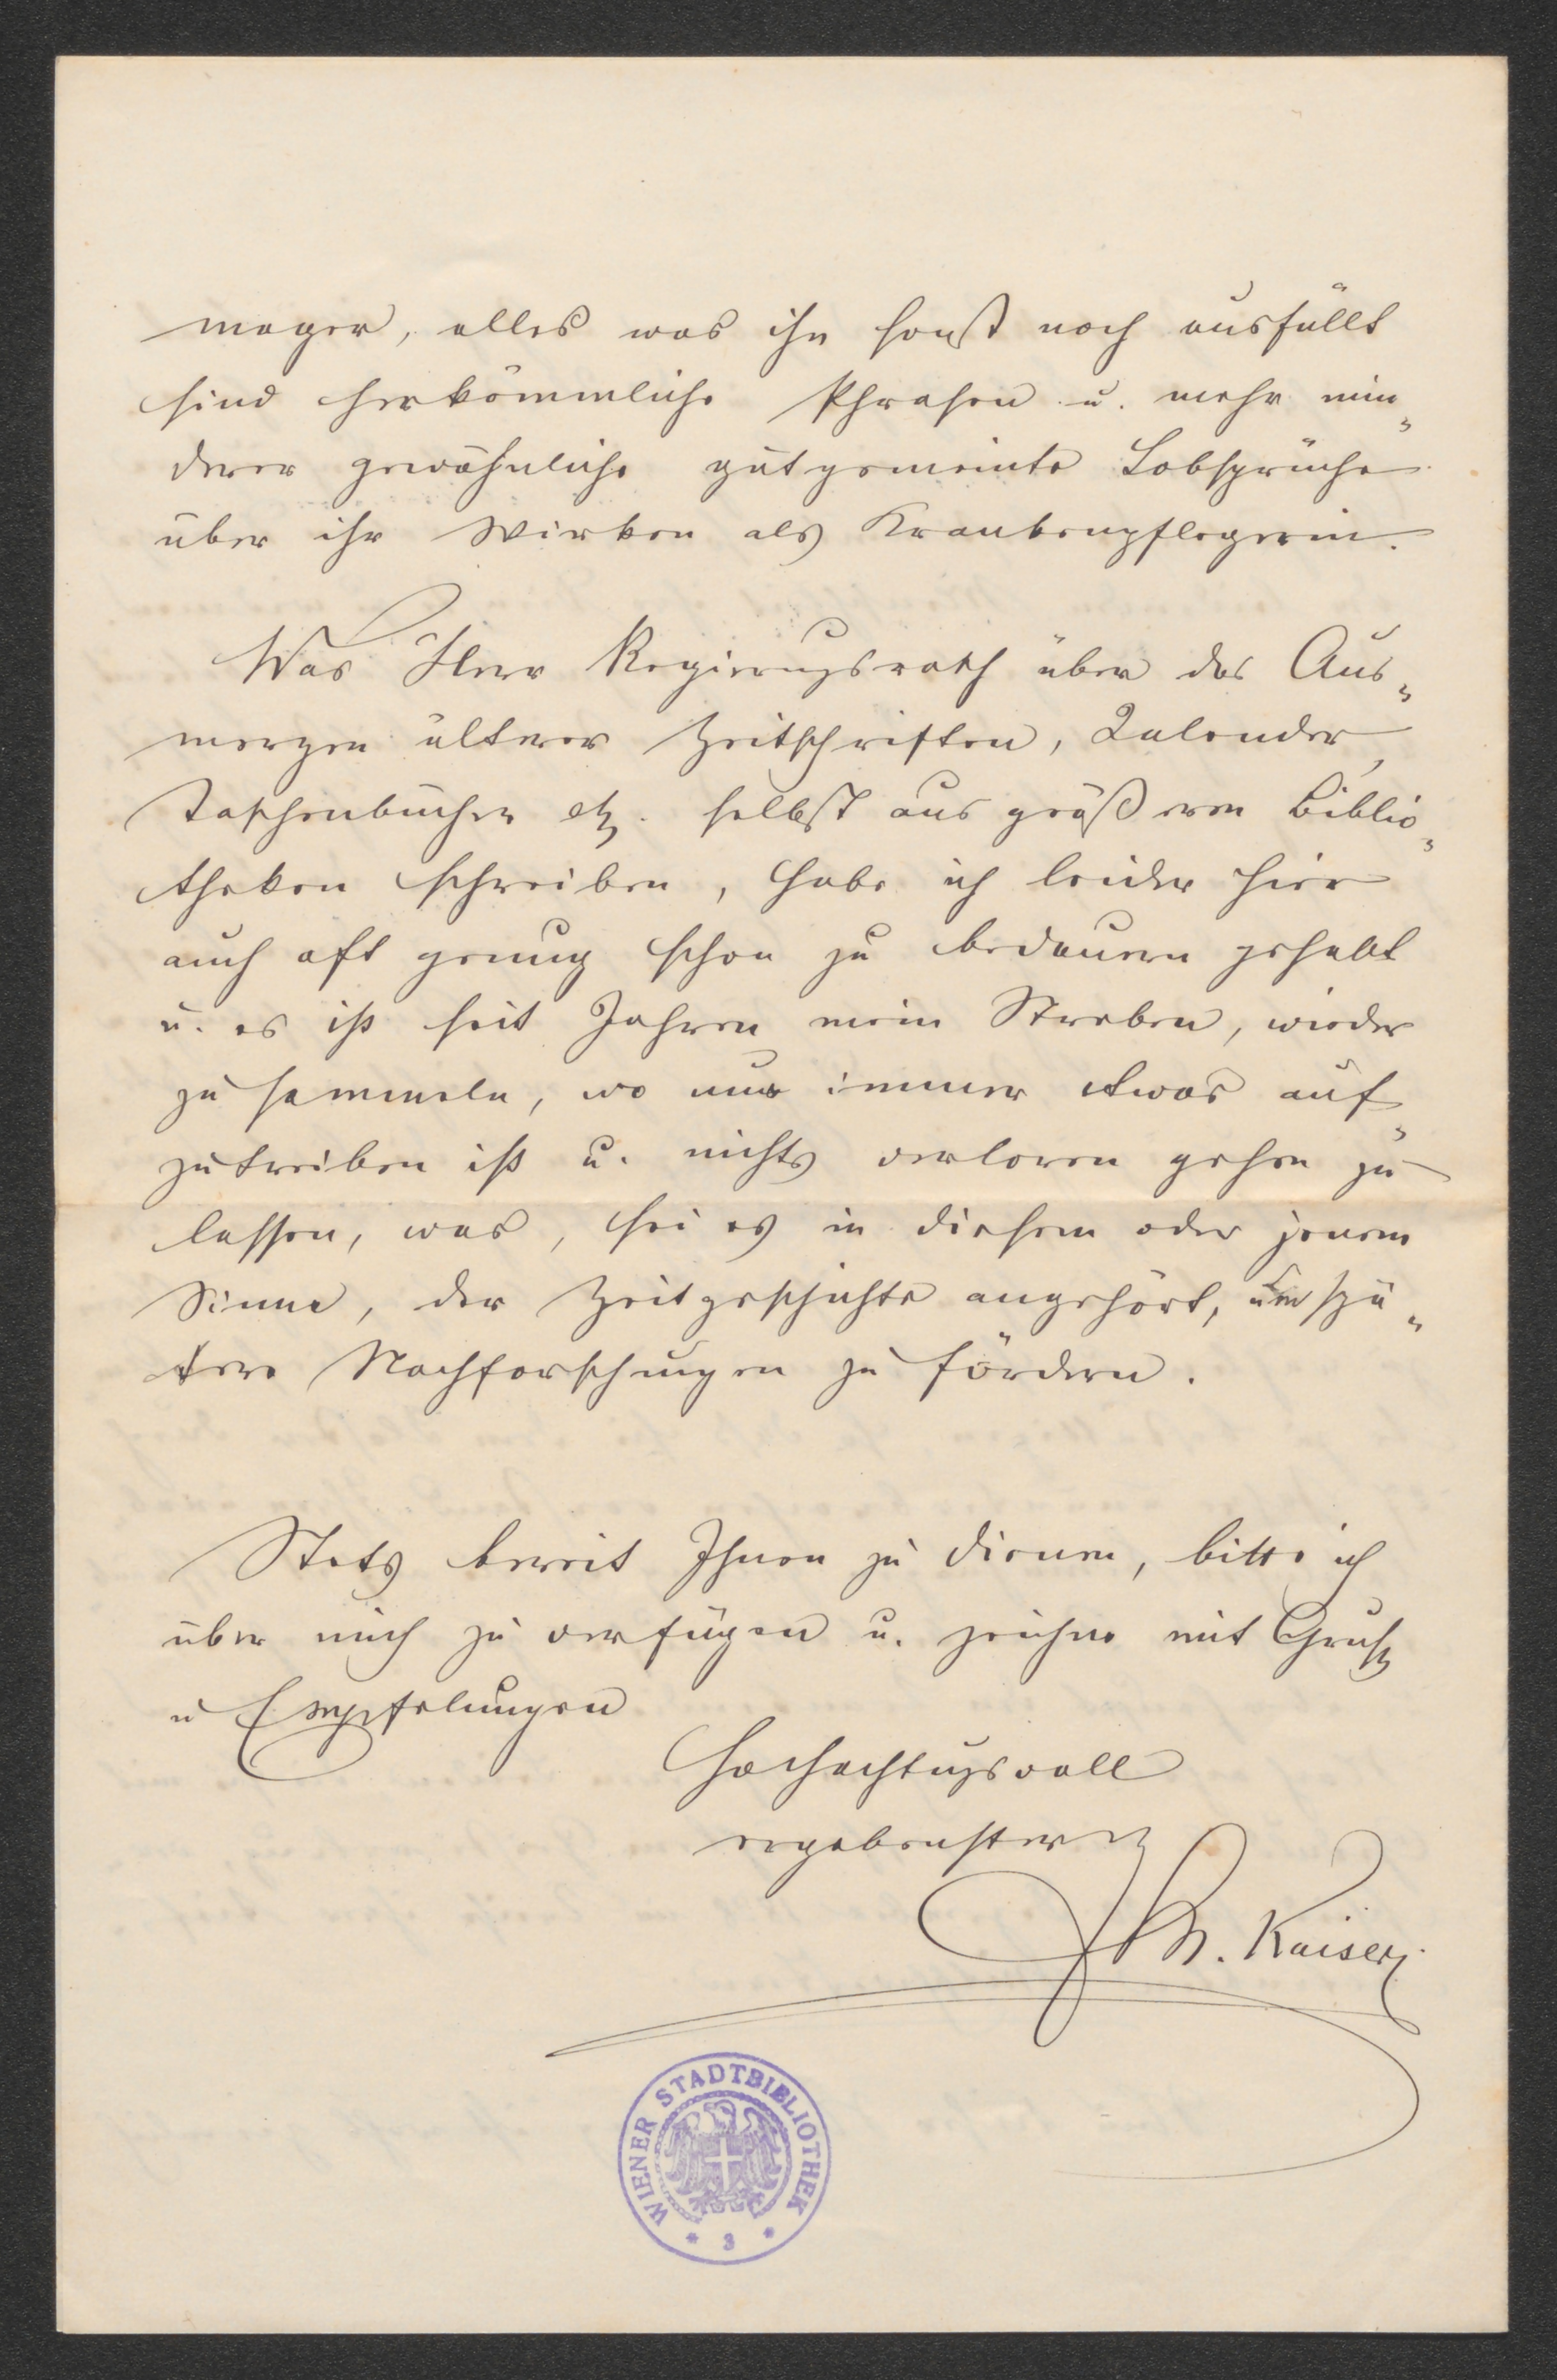 mager, alles was ihn sonst noch ausfüllt
sind herkömmliche Phrasen u. mehr min„
derer gewöhnliche gutgemeinte Lobsprüche
über ihr Wirken als Krankenpflegerin.
Was Herr Regierungsrath über das Aus„
merzen älterer Zeitschriften, Kalender,
Taschenbücher etz. selbst aus größeren Biblio„
theken schreiben, habe ich leider hier
auch oft genug schon zu bedauern gehabt
u. es ist seit Jahren mein Streben, wieder
zu sammeln, wo nur immer etwas auf„
zutreiben ist u. nichts verloren gehen zu
lassen, was, sei es in diesem oder jenem
Sinne, der Zeitgeschichte angehört, um spä„
tere Nachforschungen zu fördern.
Stets bereit Ihnen zu dienen, bitte ich
über mich zu verfügen u. zeichne mit Gruß
u Empfelungen
Hochachtungsvoll
ergebenster
Kaiser
WIENER STADTBIBLIOTHEK
* 3 *